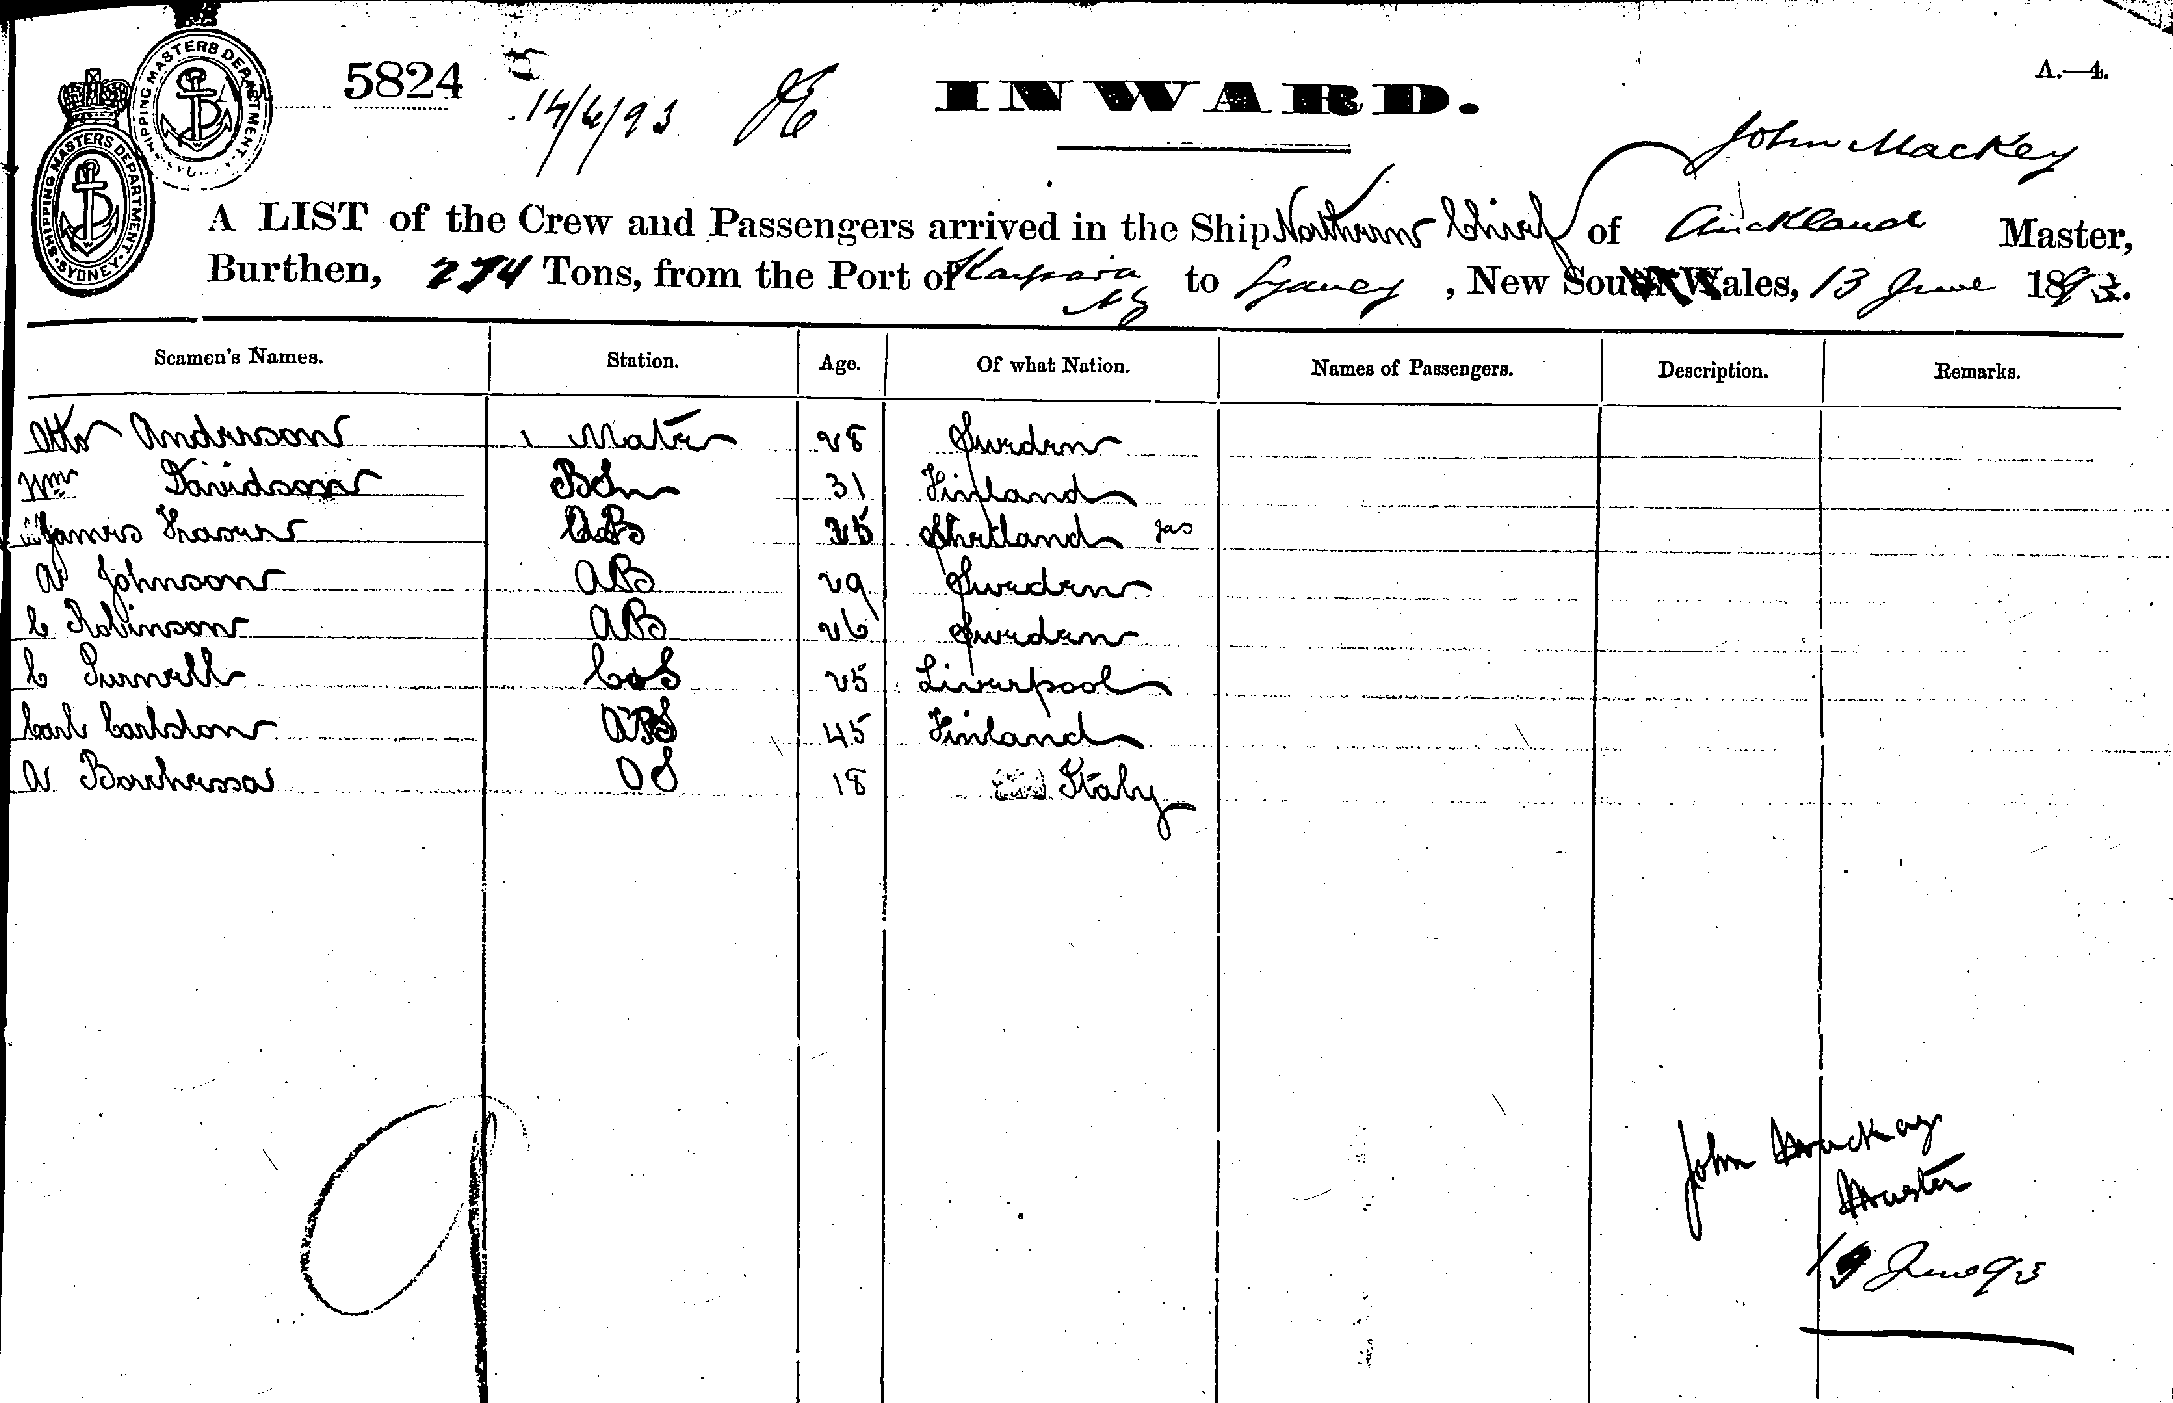 SHIPPING MASTERS DEPARTMENT
SHIPPING MASTERS DEPARTMENT. SYDNEY.
5824
14/6/93
INWARD.
A.—4.
John Mackey
A LIST of the Crew and Passengers arrived in the Ship Northern Chief of Auckland Master,
Burthen, 274 Tons, from the Port of Kaipara NZ to Sydney, New South Wales, 13 June 1893.
Seamen's Names. Station. Age. Of what Nation. Names of Passengers. Description. Remarks.
Otto Anderson 1 Mate 28 Sweden
Wm Davidson BSn 31 Finland
James Fraser AB 25 Shetland Jas
A Johnson AB 29 Sweden
C Robinson AB 26 Sweden
C Purnell C&S 25 Liverpool
Carl Carlston ABS 45 Finland
A OS 18 Italy
John Mackay
Master
13 June 93